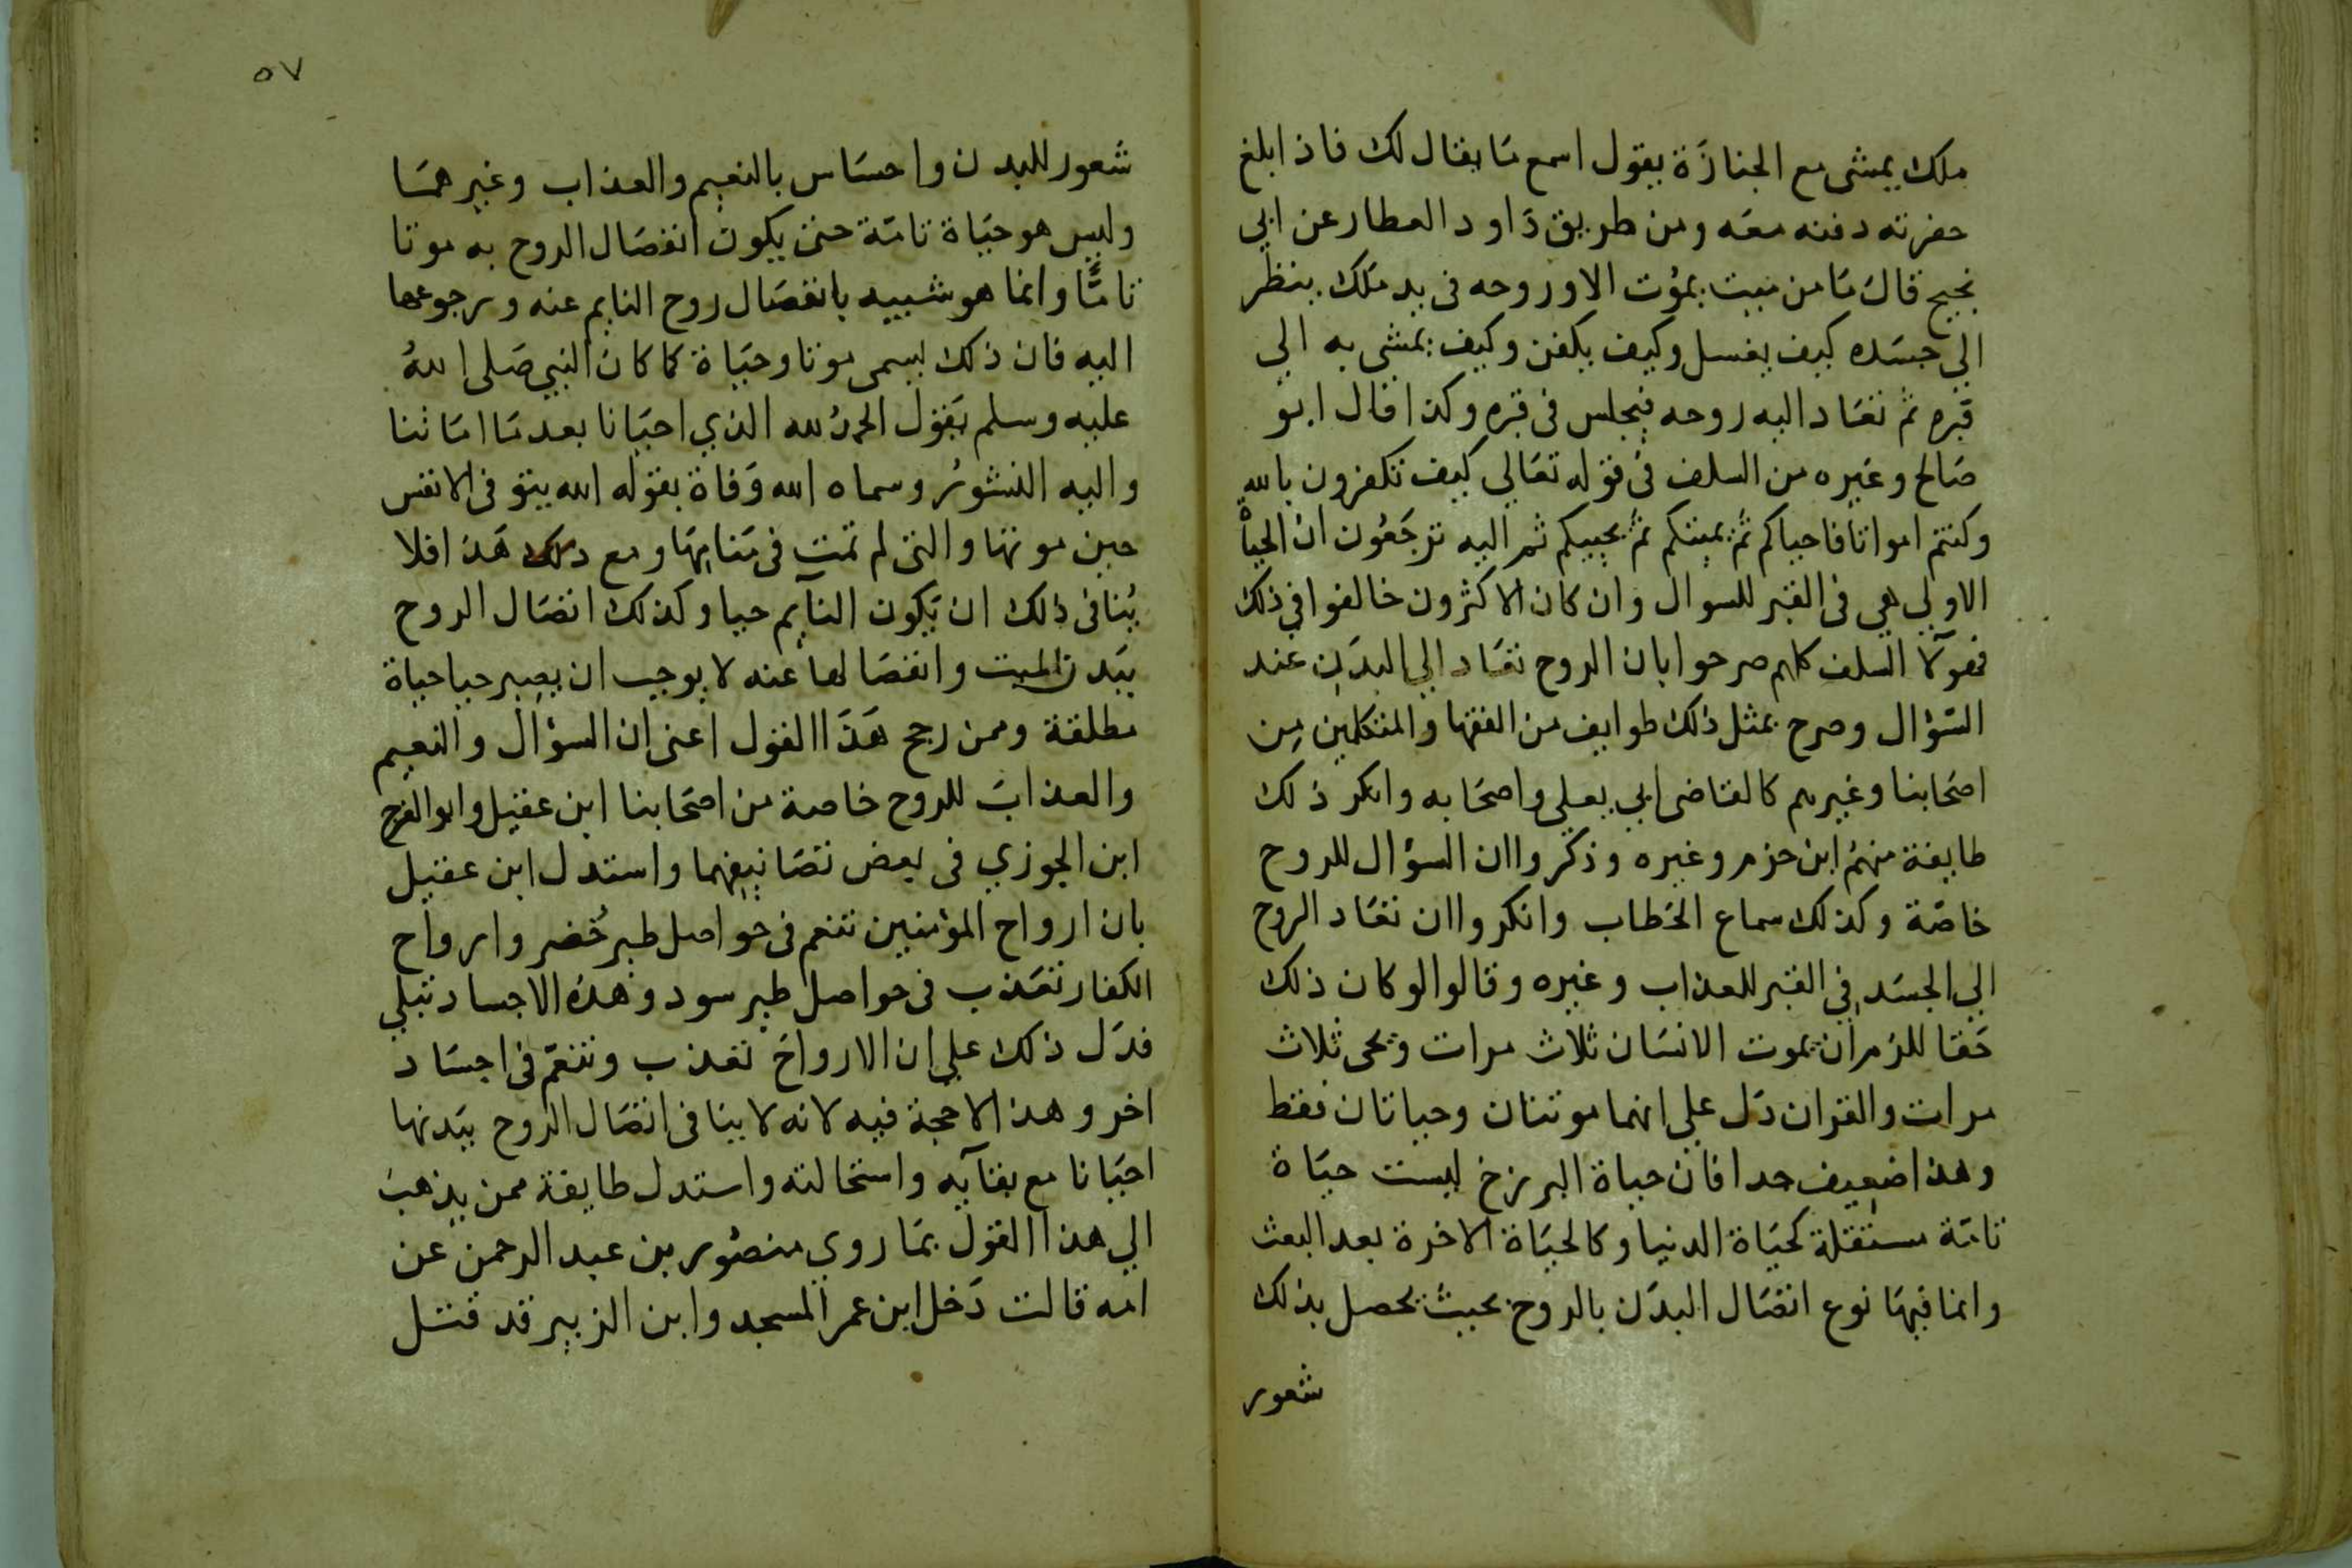 ملك يمشى مع الجنازة يقول اسمع ما يقال لك فاذا بلغ
حفرته دفنه معه ومن طريق داود العطار عن ابي
نجيح قال ما من ميت يموت الا وروحه فى يد ملك ينظر
الي جسده كيف يغسل وكيف يكفن وكيف يمشى به الي
قبره ثم تعاد اليه روحه فيجلس فى قبره وكذا قال ابو
صالح وغيره من السلف فى قوله تعالي كيف تكفرون بالله
وكنتم امواتا فاحياكم ثم يميتكم ثم يحييكم ثم اليه ترجعون ان الحياة
الاولي هي فى القبر للسوال وان كان الاكثرون خالفوا في ذلك
فهولآ السلف كلهم صرحوا بان الروح تعاد الي البدن عند
السؤال وصرح بمثل ذلك طوايف من الفقها والمتكلمين من
اصحابنا وغيرهم كالقاضى ابي يعلى واصحابه وانكر ذلك
طايفة منهم ابن حزم وغيره وذكروا ان السؤال للروح
خاصة وكذلك سماع الخطاب وانكروا ان تعاد الروح
الي الجسد في القبر للعذاب وغيره وقالوا لو كان ذلك
حقا للزم ان يموت الانسان ثلاث مرات ويحى ثلاث
مرات والقران دل على انهما موتتان وحياتان فقط
وهذا ضعيف جدا فان حياة البرزخ ليست حياة
تامة مستقلة كحياة الدنيا وكالحياة الاخرة بعد البعث
وانما فيها نوع اتصال البدن بالروح بحيث يحصل بذلك
شعور
٥٧
شعور للبدن واحساس بالنعيم والعذاب وغيرهما
وليس هو حياة تامة حتى يكون انفصال الروح به موتا
تامًّا وانما هو شبيه بانفصال روح النايم عنه ورجوعها
اليه فان ذلك يسمى موتا وحياة كما كان النبي صلى الله
عليه وسلم يقول الحمد لله الذي احيانا بعد ما اماتنا
واليه النشور وسماه الله وفاة بقوله الله يتوفى الانفس
حين موتها والتى لم تمت فى منامها ومع ذلك هذا فلا
ينافى ذلك ان يكون النآيم حيا وكذلك اتصال الروح
ببدن الميت وانفصالها عنه لا يوجب ان يصير حيا حياة
مطلقة وممن رجح هذا القول اعنى ان السؤال والنعيم
والعذاب للروح خاصة من اصحابنا ابن عقيل وابو الفرج
ابن الجوزي فى بعض تصانيفهما واستدل ابن عقيل
بان ارواح المؤمنين تنعم فى حواصل طير خُضر وارواح
الكفار تعذب فى حواصل طير سود وهذه الاجساد تبلي
فدل ذلك علي ان الارواح تعذب وتنعم فى اجساد
اخر وهذا لا حجة فيه لانه لا ينافى اتصال الروح ببدنها
احيانا مع بقآيه واستحالته واستدل طايفة ممن يذهب
الي هذا القول بما روي منصور بن عبد الرحمن عن
امه قالت دخل ابن عمر المسجد وابن الزبير قد قتل